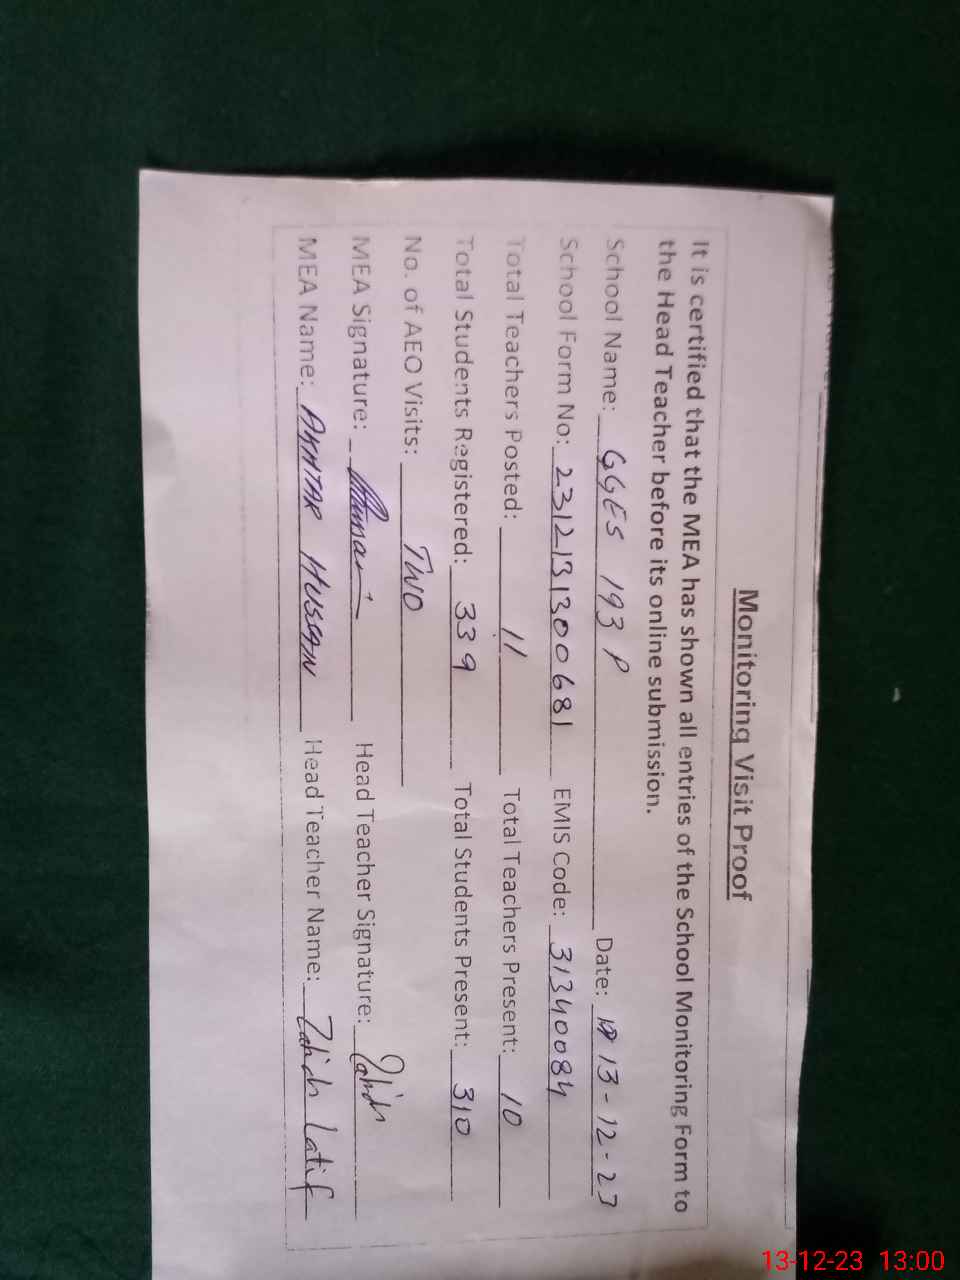 Monitoring Visit Proof
It is certified that the MEA has shown all entries of the School Monitoring Form to
the Head Teacher before its online submission.
School Name: GGES 193 P Date: 13-12-23
School Form No: 2312131300681 EMIS Code: 31340084
Total Teachers Posted: 11 Total Teachers Present: 10
Total Students Registered: 339 Total Students Present: 310
No. of AEO Visits: TWO
MEA Signature: Head Teacher Signature: Zahida
MEA Name: AKHTAR HUSSAIN Head Teacher Name: Zahida Latif
13-12-23 13:00